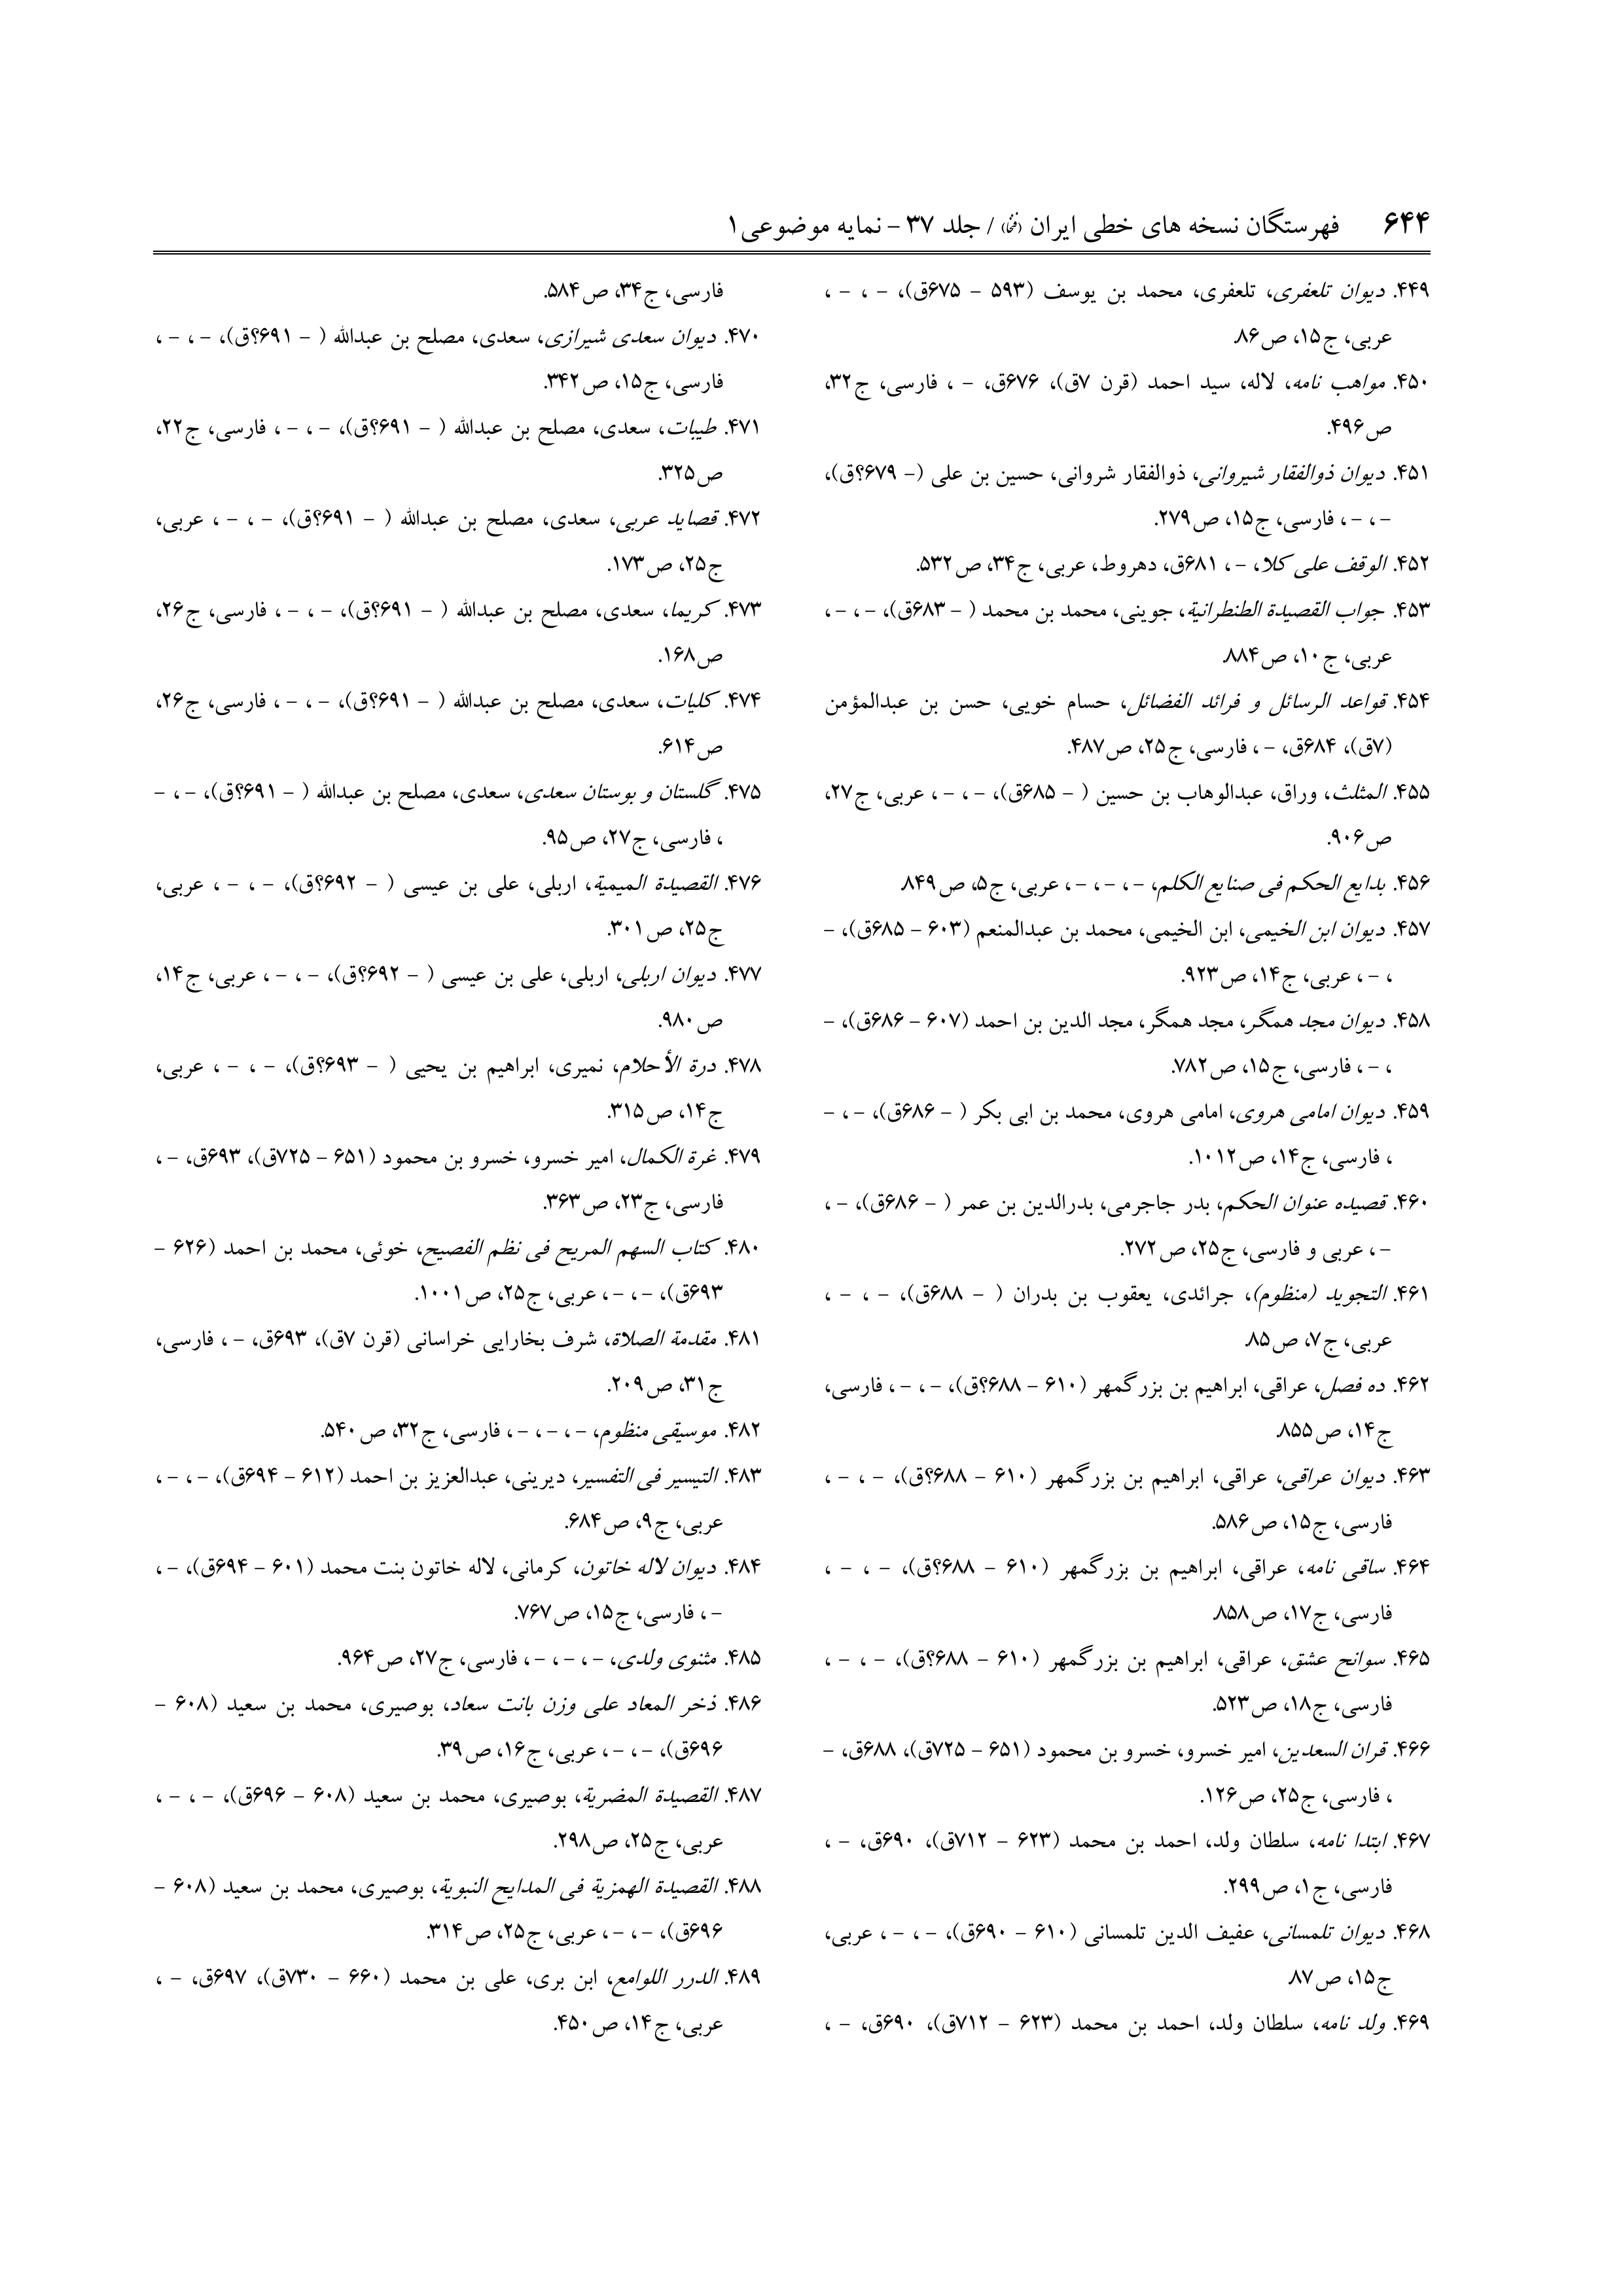 ۶۴۴ فهرستگان نسخه های خطی ایران (فنخا) / جلد ۳۷ - نمایه موضوعی۱
۴۴۹. دیوان تلعفری، تلعفری، محمد بن یوسف (۵۹۳ - ۶۷۵ق)، - ، - ،
عربی، ج۱۵، ص۸۶.
۴۵۰. مواهب نامه، لاله، سید احمد (قرن ۷ق)، ۶۷۶ق، - ، فارسی، ج۳۲،
ص۴۹۶.
۴۵۱. دیوان ذوالفقار شیروانی، ذوالفقار شروانی، حسین بن علی (- ۶۷۹؟ق)،
- ، - ، فارسی، ج۱۵، ص۲۷۹.
۴۵۲. الوقف علی کلا، - ، ۶۸۱ق، دهروط، عربی، ج۳۴، ص۵۳۲.
۴۵۳. جواب القصیدة الطنطرانیة، جوینی، محمد بن محمد ( - ۶۸۳ق)، - ، - ،
عربی، ج۱۰، ص۸۸۴.
۴۵۴. قواعد الرسائل و فرائد الفضائل، حسام خویی، حسن بن عبدالمؤمن
(۷ق)، ۶۸۴ق، - ، فارسی، ج۲۵، ص۴۸۷.
۴۵۵. المثلث، وراق، عبدالوهاب بن حسین ( - ۶۸۵ق)، - ، - ، عربی، ج۲۷،
ص۹۰۶.
۴۵۶. بدایع الحکم فی صنایع الکلم، - ، - ، - ، عربی، ج۵، ص۸۴۹.
۴۵۷. دیوان ابن الخیمی، ابن الخیمی، محمد بن عبدالمنعم (۶۰۳ - ۶۸۵ق)، -
، - ، عربی، ج۱۴، ص۹۲۳.
۴۵۸. دیوان مجد همگر، مجد همگر، مجد الدین بن احمد (۶۰۷ - ۶۸۶ق)، -
، - ، فارسی، ج۱۵، ص۷۸۲.
۴۵۹. دیوان امامی هروی، امامی هروی، محمد بن ابی بکر ( - ۶۸۶ق)، - ، -
، فارسی، ج۱۴، ص۱۰۱۲.
۴۶۰. قصیده عنوان الحکم، بدر جاجرمی، بدرالدین بن عمر ( - ۶۸۶ق)، - ،
- ، عربی و فارسی، ج۲۵، ص۲۷۲.
۴۶۱. التجوید (منظوم)، جرائدی، یعقوب بن بدران ( - ۶۸۸ق)، - ، - ،
عربی، ج۷، ص۸۵.
۴۶۲. ده فصل، عراقی، ابراهیم بن بزرگمهر (۶۱۰ - ۶۸۸؟ق)، - ، - ، فارسی،
ج۱۴، ص۸۵۵.
۴۶۳. دیوان عراقی، عراقی، ابراهیم بن بزرگمهر (۶۱۰ - ۶۸۸؟ق)، - ، - ،
فارسی، ج۱۵، ص۵۸۶.
۴۶۴. ساقی نامه، عراقی، ابراهیم بن بزرگمهر (۶۱۰ - ۶۸۸؟ق)، - ، - ،
فارسی، ج۱۷، ص۸۵۸.
۴۶۵. سوانح عشق، عراقی، ابراهیم بن بزرگمهر (۶۱۰ - ۶۸۸؟ق)، - ، - ،
فارسی، ج۱۸، ص۵۲۳.
۴۶۶. قران السعدین، امیر خسرو، خسرو بن محمود (۶۵۱ - ۷۲۵ق)، ۶۸۸ق، -
، فارسی، ج۲۵، ص۱۲۶.
۴۶۷. ابتدا نامه، سلطان ولد، احمد بن محمد (۶۲۳ - ۷۱۲ق)، ۶۹۰ق، - ،
فارسی، ج۱، ص۲۹۹.
۴۶۸. دیوان تلمسانی، عفیف الدین تلمسانی (۶۱۰ - ۶۹۰ق)، - ، - ، عربی،
ج۱۵، ص۸۷.
۴۶۹. ولد نامه، سلطان ولد، احمد بن محمد (۶۲۳ - ۷۱۲ق)، ۶۹۰ق، - ،
فارسی، ج۳۴، ص۵۸۴.
۴۷۰. دیوان سعدی شیرازی، سعدی، مصلح بن عبدالله ( - ۶۹۱؟ق)، - ، - ،
فارسی، ج۱۵، ص۳۴۲.
۴۷۱. طیبات، سعدی، مصلح بن عبدالله ( - ۶۹۱؟ق)، - ، - ، فارسی، ج۲۲،
ص۳۲۵.
۴۷۲. قصاید عربی، سعدی، مصلح بن عبدالله ( - ۶۹۱؟ق)، - ، - ، عربی،
ج۲۵، ص۱۷۳.
۴۷۳. کریما، سعدی، مصلح بن عبدالله ( - ۶۹۱؟ق)، - ، - ، فارسی، ج۲۶،
ص۱۶۸.
۴۷۴. کلیات، سعدی، مصلح بن عبدالله ( - ۶۹۱؟ق)، - ، - ، فارسی، ج۲۶،
ص۶۱۴.
۴۷۵. گلستان و بوستان سعدی، سعدی، مصلح بن عبدالله ( - ۶۹۱؟ق)، - ، -
، فارسی، ج۲۷، ص۹۵.
۴۷۶. القصیدة المیمیة، اربلی، علی بن عیسی ( - ۶۹۲؟ق)، - ، - ، عربی،
ج۲۵، ص۳۰۱.
۴۷۷. دیوان اربلی، اربلی، علی بن عیسی ( - ۶۹۲؟ق)، - ، - ، عربی، ج۱۴،
ص۹۸۰.
۴۷۸. درة الأحلام، نمیری، ابراهیم بن یحیی ( - ۶۹۳؟ق)، - ، - ، عربی،
ج۱۴، ص۳۱۵.
۴۷۹. غرة الکمال، امیر خسرو، خسرو بن محمود (۶۵۱ - ۷۲۵ق)، ۶۹۳ق، - ،
فارسی، ج۲۳، ص۳۶۳.
۴۸۰. کتاب السهم المریح فی نظم الفصیح، خوئی، محمد بن احمد (۶۲۶ -
۶۹۳ق)، - ، - ، عربی، ج۲۵، ص۱۰۰۱.
۴۸۱. مقدمة الصلاة، شرف بخارایی خراسانی (قرن ۷ق)، ۶۹۳ق، - ، فارسی،
ج۳۱، ص۲۰۹.
۴۸۲. موسیقی منظوم، - ، - ، - ، فارسی، ج۳۲، ص۵۴۰.
۴۸۳. التیسیر فی التفسیر، دیرینی، عبدالعزیز بن احمد (۶۱۲ - ۶۹۴ق)، - ، - ،
عربی، ج۹، ص۶۸۴.
۴۸۴. دیوان لاله خاتون، کرمانی، لاله خاتون بنت محمد (۶۰۱ - ۶۹۴ق)، - ،
- ، فارسی، ج۱۵، ص۷۶۷.
۴۸۵. مثنوی ولدی، - ، - ، - ، فارسی، ج۲۷، ص۹۶۴.
۴۸۶. ذخر المعاد علی وزن بانت سعاد، بوصیری، محمد بن سعید (۶۰۸ -
۶۹۶ق)، - ، - ، عربی، ج۱۶، ص۳۹.
۴۸۷. القصیدة المضریة، بوصیری، محمد بن سعید (۶۰۸ - ۶۹۶ق)، - ، - ،
عربی، ج۲۵، ص۲۹۸.
۴۸۸. القصیدة الهمزیة فی المدایح النبویة، بوصیری، محمد بن سعید (۶۰۸ -
۶۹۶ق)، - ، - ، عربی، ج۲۵، ص۳۱۴.
۴۸۹. الدرر اللوامع، ابن بری، علی بن محمد (۶۶۰ - ۷۳۰ق)، ۶۹۷ق، - ،
عربی، ج۱۴، ص۴۵۰.